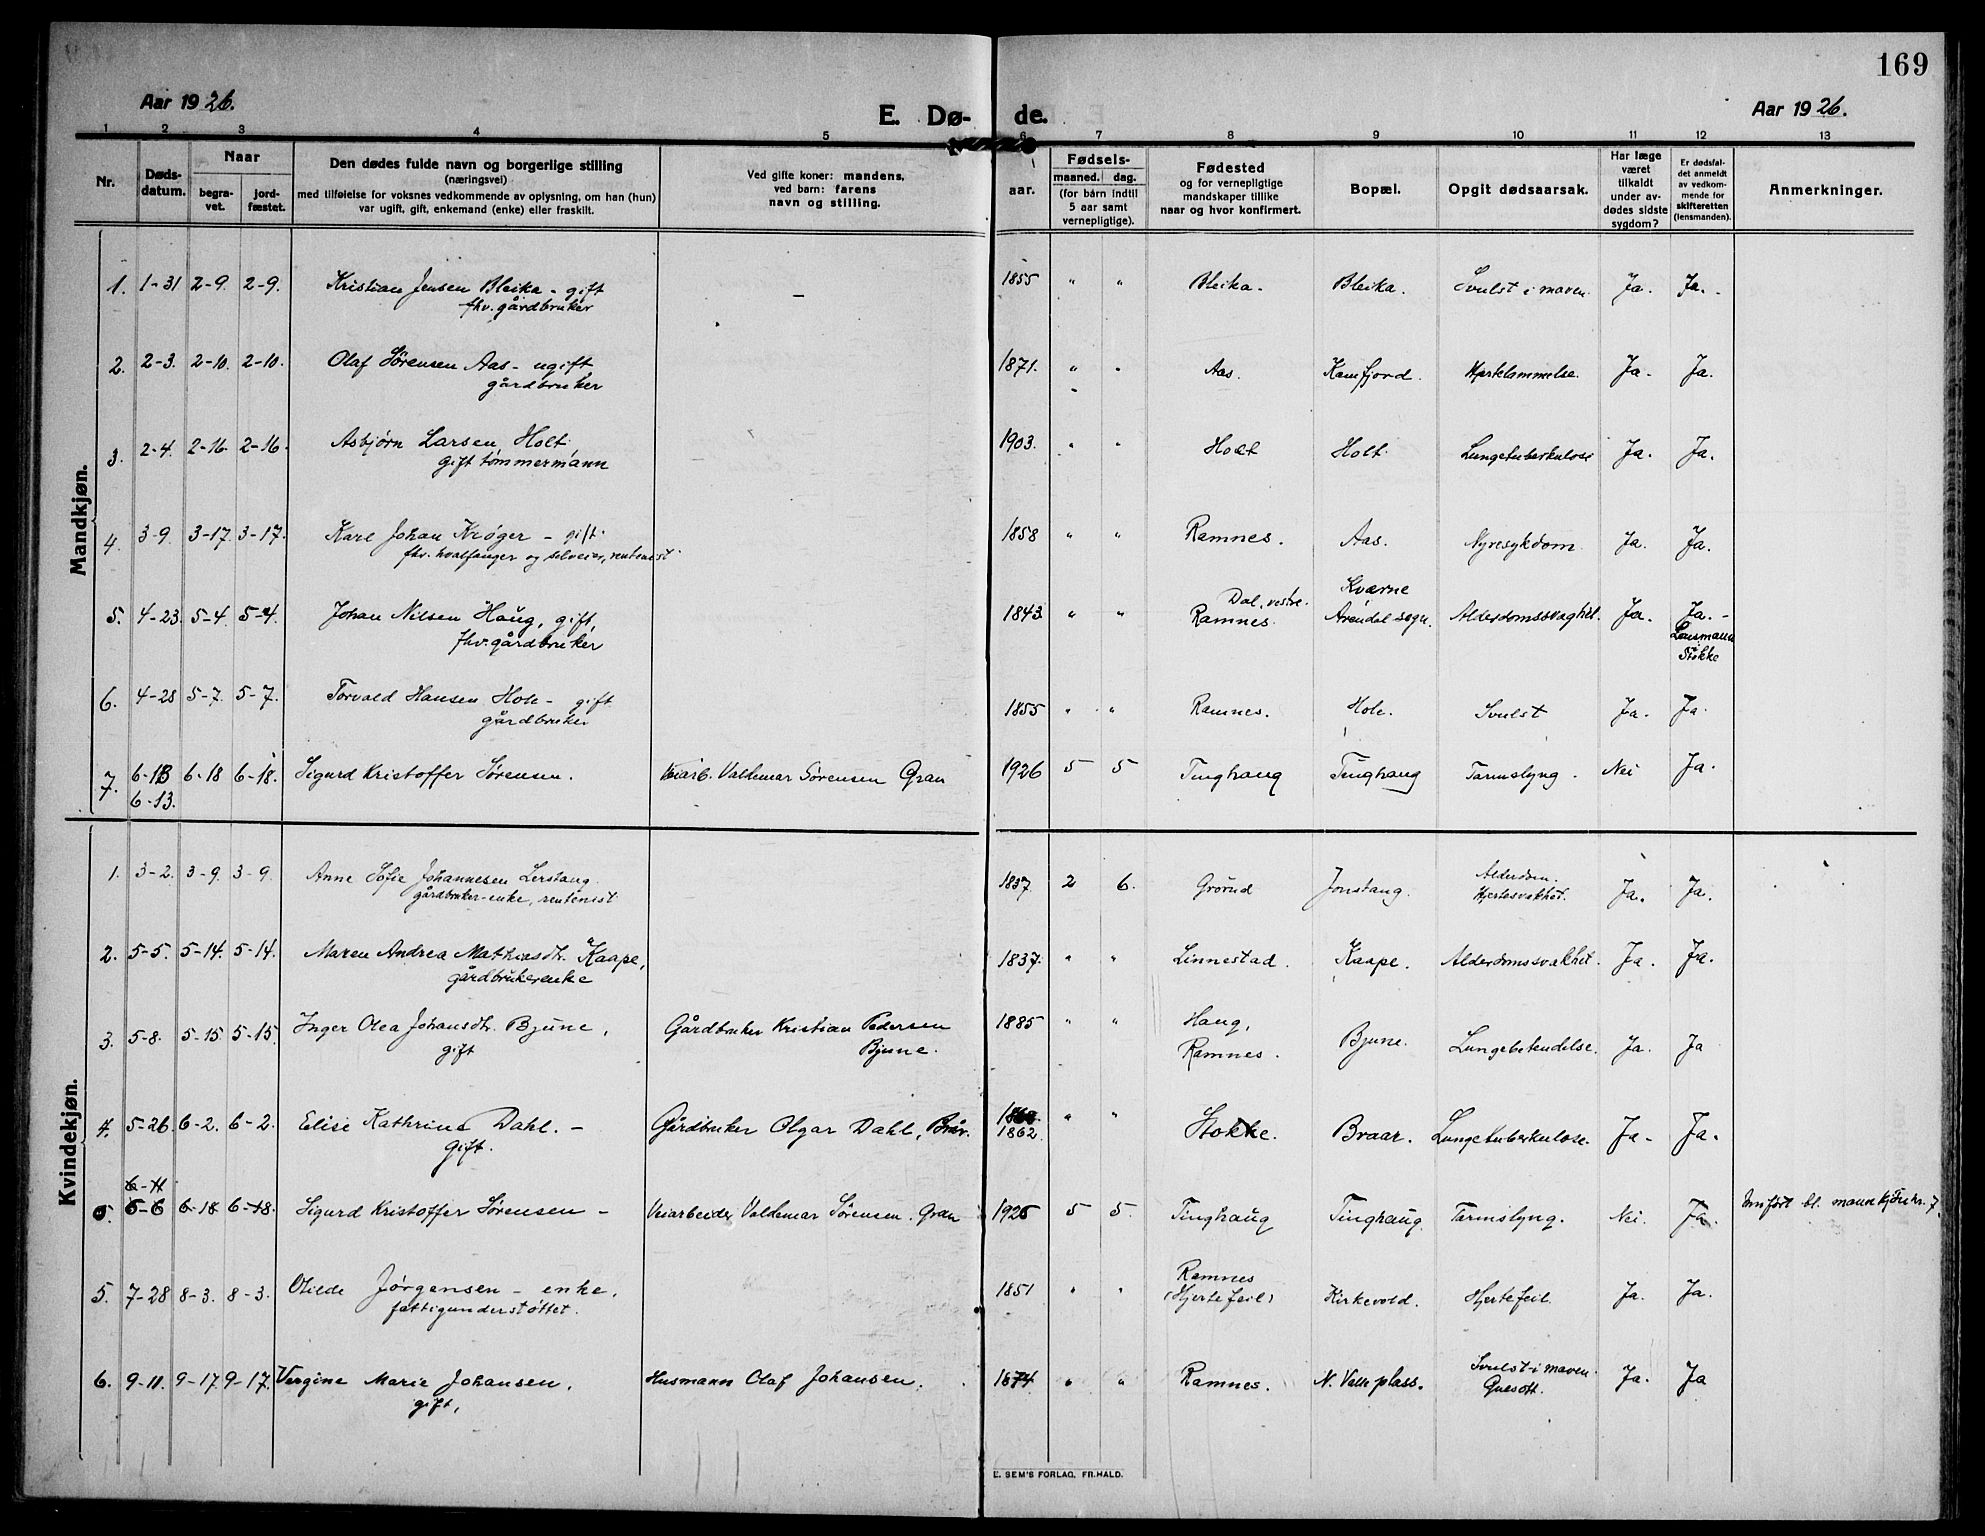 169
Aar 1926.
E. Dø-
de.
Aar 1926.
1 2 3 4 5 6 7 8 9 10 11 12 13
Nr.
Døds-
datum.
Naar
begra-
vet.
jord-
fæstet.
Den dødes fulde navn og borgerlige stilling
(næringsvei)
med tilføielse for voksnes vedkommende av oplysning, om han (hun)
var ugift, gift, enkemand (enke) eller fraskilt.
Ved gifte koner: mandens,
ved barn: farens
navn og stilling.
aar.
Fødsels-
maaned. dag.
(for børn indtil
5 aar samt
vernepligtige).
Fødested
og for vernepligtige
mandskaper tillike
naar og hvor konfirmert.
Bopæl.
Opgit dødsaarsak.
Har læge
været
tilkaldt
under av-
dødes sidste
sygdom?
Er dødsfal-
det anmeldt
av vedkom-
mende for
skifteretten
(lensmanden).
Anmerkninger.
Mandkjøn.
1. 1-31 2-9. 2-9. Kristian Jensen Bleika - gift — 1855 " " Bleika. Bleika. Svulst i maven. Ja. Ja.
fhv. gårdbruker
2. 2-3. 2-10. 2-10. Olaf Sørensen Aas - ugift, 1871. " " Aas. Kamfjord. Hjertelammelse. Ja. Ja.
gårdbruker
3. 2-4. 2-16. 2-16. Asbjørn Larsen Holt. 1903. " " Holt Holt. Lungetuberkulose Ja. Ja.
gift tømmermann
4. 3-9. 3-17. 3-17. Karl Johan Krøger - gift. 1858 " " Ramnes. Aas. Nyresykdom. Ja. Ja.
fhv. hvalfanger og selveier, rentenist.
5. 4-23. 5-4. 5-4. Johan Nilsen Haug, gift, 1843. " " Dal, vestre. Ramnes. Kværne Arendal sogn. Alderdomssvaghet. Ja. Ja. -
fhv. gårdbruker
Lensmann
Stokke
6. 4-28 5-7. 5-7. Torvald Hansen Hole - gift 1855 " " Ramnes. Hole. Svulst Ja. Ja.
gårdbruker
7. 6-13 6-18 6-18. Sigurd Kristoffer Sørensen. Veiarb. Valdemar Sørensen Gran 1926 5 5 Tinghaug Tinghaug Tarmslyng. Nei Ja.
6-13.
Kvindekjøn.
1. 3-2. 3-9. 3-9. Anne Sofie Johannesen Lerstang. 1837. 2 6. Grørud Jonstang. Alderdom. Hjertesvakhet. Ja. Ja.
gårdbruker-enke, rentenist
2. 5-5. 5-14. 5-14. Maren Andrea Mathiasdtr. Kaape, 1837. " " Linnestad. Kaape. Alderdomssvakhet. Ja. Ja.
gårdbrukerenke
3. 5-8. 5-15. 5-15. Inger Olea Johansdtr. Bjune, Gårdbruker Kristian Pedersen 1885 " " Haug, Ramnes. Bjune. Lungebetendelse. Ja. Ja
gift Bjune.
4. 5-26. 6-2. 6-2. Elise Kathrine Dahl. - Gårdbruker Olgar Dahl, Brår. 1862. " " Stokke. Braar. Lungetuberkulose. Ja- Ja.
gift.
6-11
5. 6-6 6-18 6-18. Sigurd Kristoffer Sørensen - Veiarbeider Valdemar Sørensen. Gran 1926 5 5. Tinghaug Tinghaug. Tarmslyng. Nei. Ja. Innført bl. mannkjøn nr. 7.
5. 7-28 8-3. 8-3. Olilde Jørgensen - enke, 1851 " " Ramnes (Hjertefeil) Kirkevold. Hjertefeil. Ja. Ja.
fattigunderstøttet.
6. 9-11. 9-17. 9-17. Vergine Marie Johansen, Husmann Olaf Johansen. 1874 " " Ramnes. N. Valle plass. Svulst i maven. Ja. Ja
gift,
E. SEM'S FORLAG, FR.HALD.